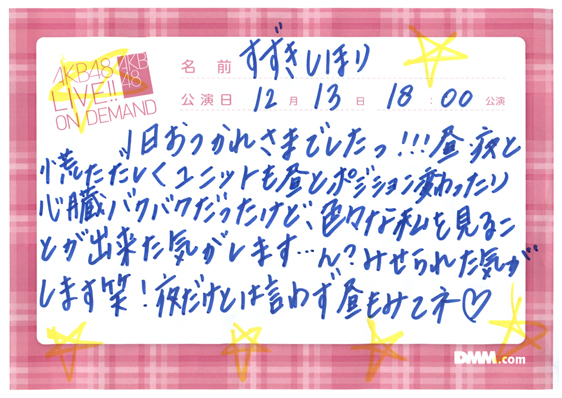 AKB48
LIVE!!
ON DEMAND
AKB
48
名 前 すずきしほり
公演日 12 月 13 日 18 : 00 公演
1日おつかれさまでしたっ!!!昼・夜と
慌ただしくユニットも昼とポジション変わったり
心臓バクバクだったけど、色々な私を見るこ
とが出来た気がします…ん?みせられた気が
します笑!夜だけとは言わず昼もみてネ♡
DMM.com